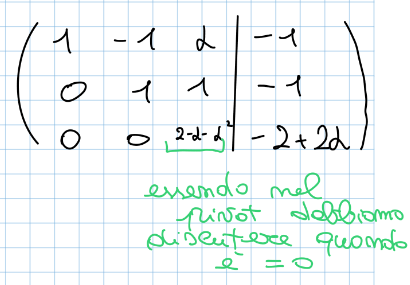 1 -1 α | -1
0 1 1 | -1
0 0 2-α-α² | -2+2α
essendo nel
pivot dobbiamo
discutere quando
è =0